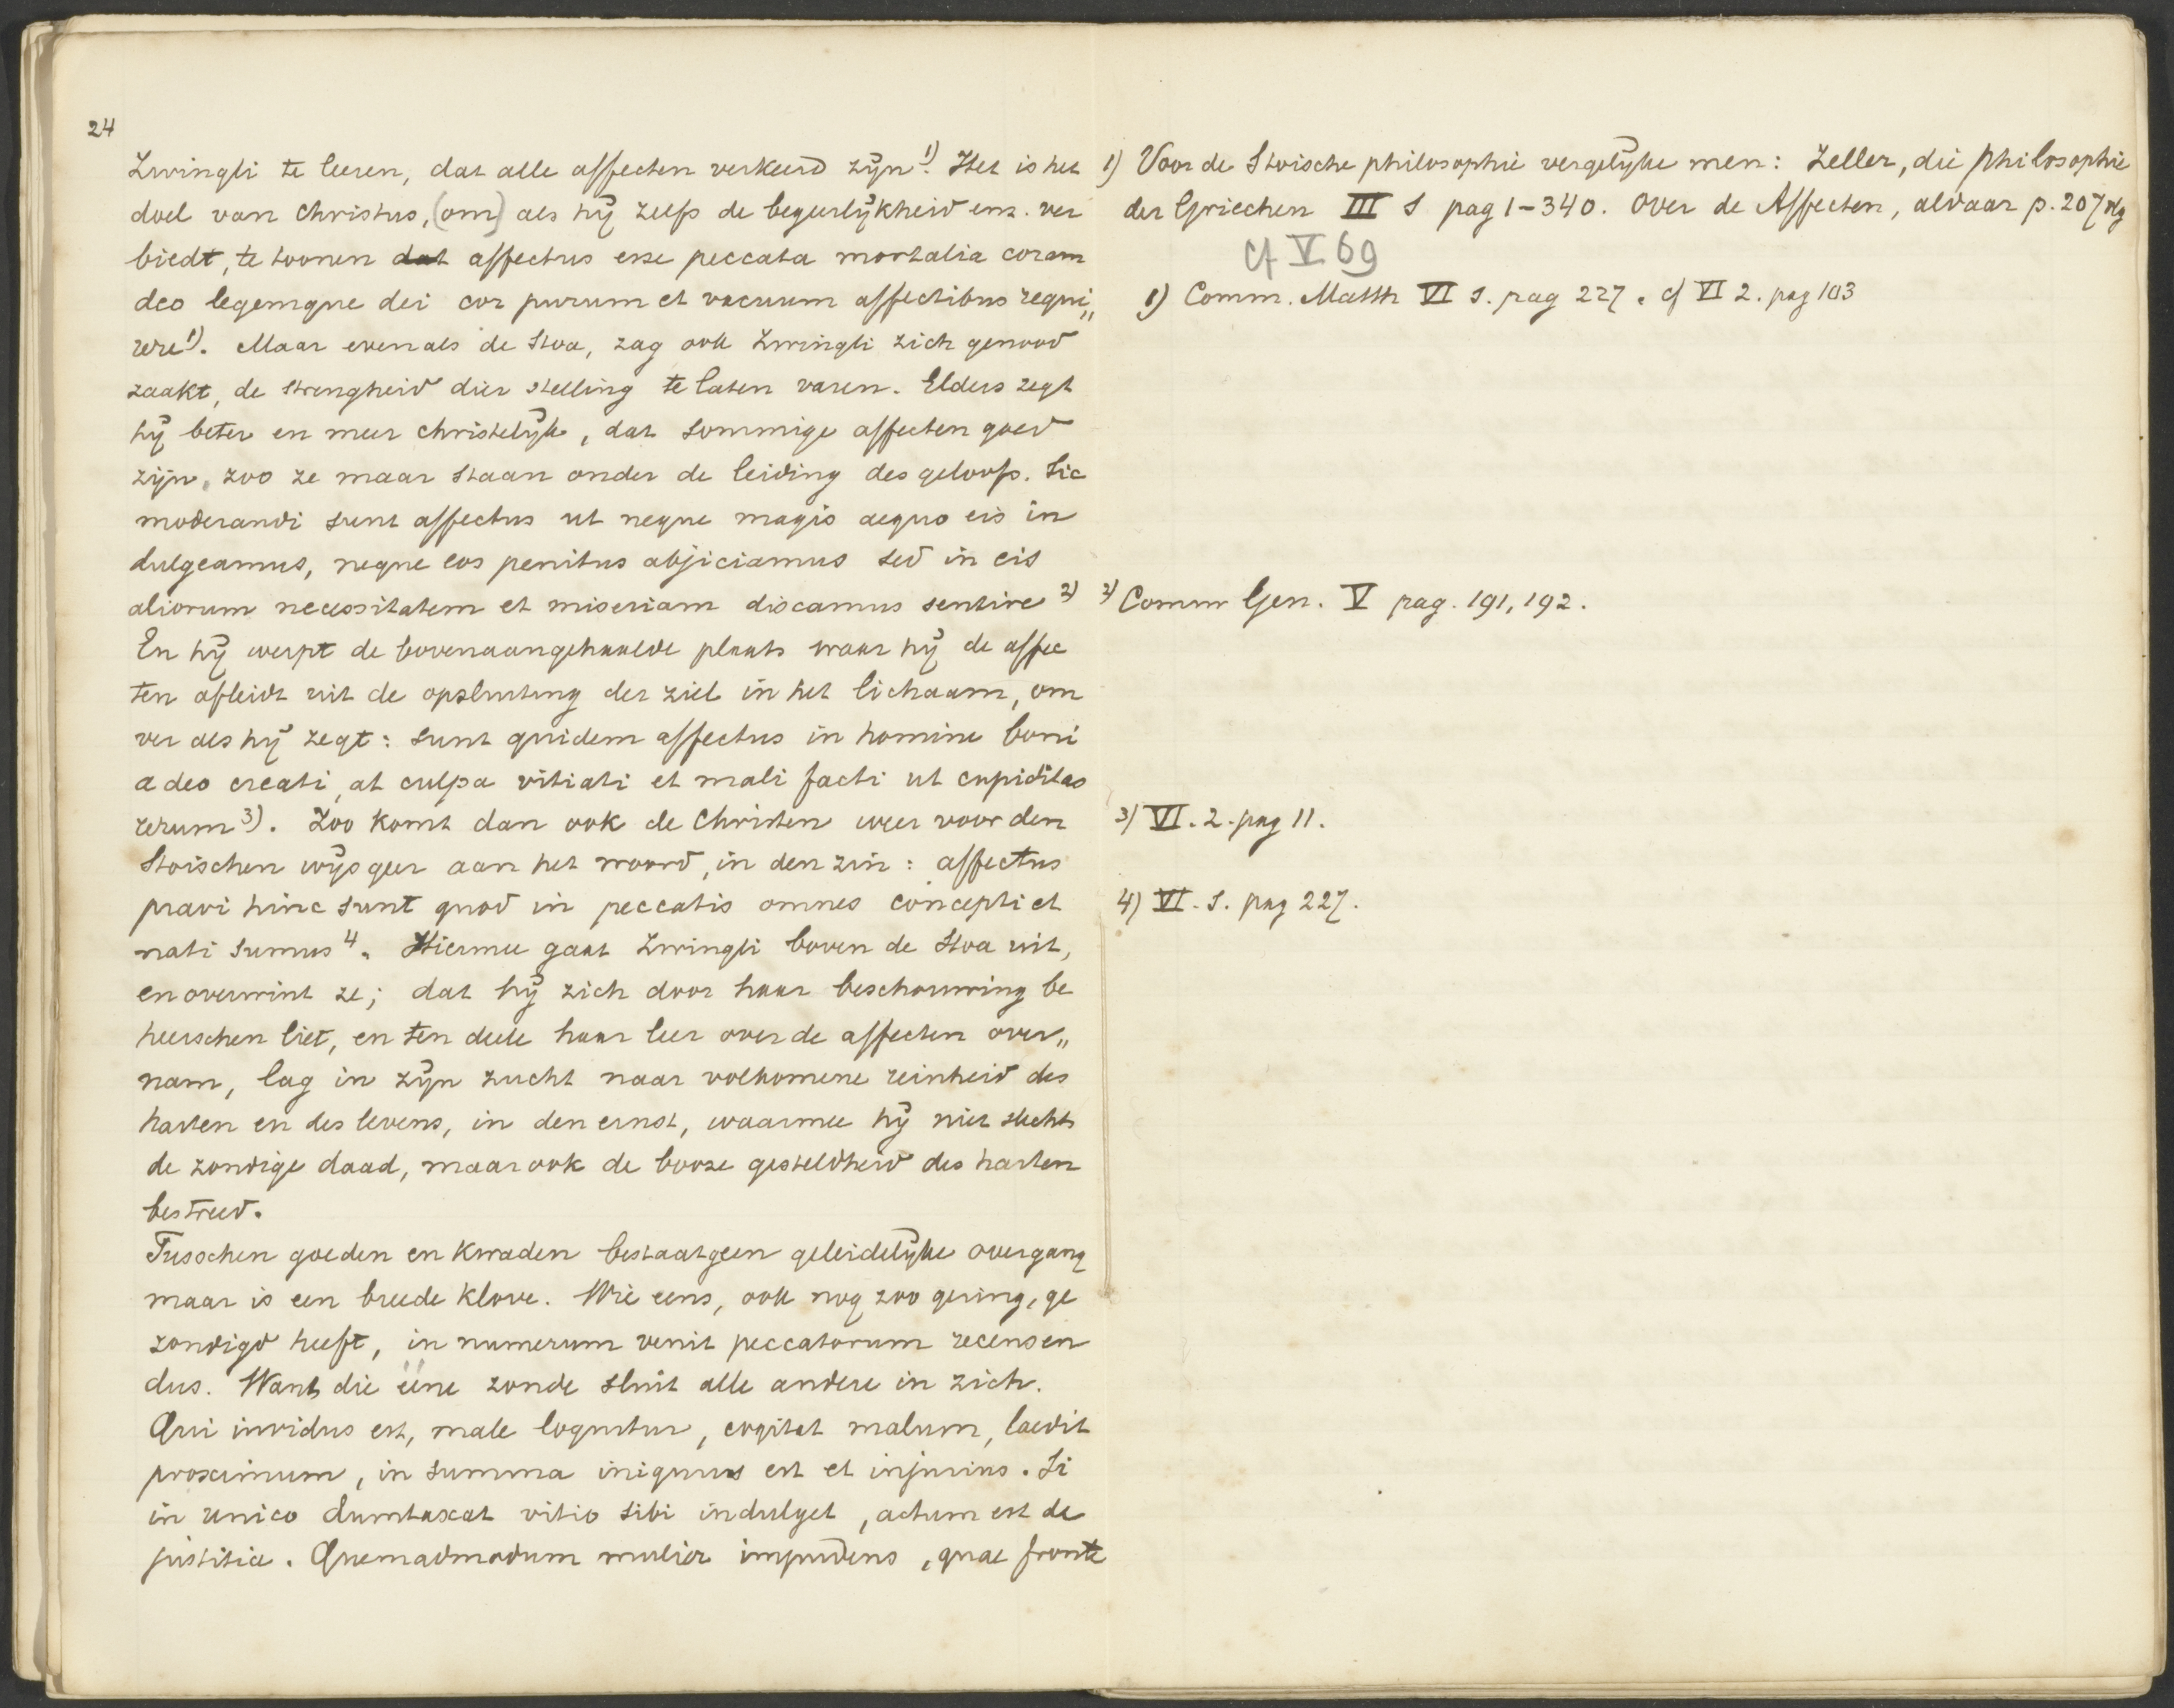 24
Zwingli te leeren, dat alle affecten verkeerd zijn 1). Het is het
doel van Christus, (om) als hij zelfs de begeerlijkheid enz. ver
biedt, te toonen dat affectus esse peccata mortalia coram
deo legemque dei cor purum et vacuum affectibus requi„
rere 1). Maar evenals de Stoa, zag ook Zwingli zich genood
zaakt, de strengheid dier stelling te laten varen. Elders zegt
hij beter en meer christelijk, dat sommige affecten goed
zijn, zoo ze maar staan onder de leiding des geloofs. Sic
moderandi sunt affectus ut neque magis aequo eis in
dulgeamus, neque eos penitus abjiciamus sed in eis
aliorum necessitatem et miseriam discamus sentire 2)
En hij werpt de bovenaangehaalde plaats waar hij de affec
ten afleidt uit de opsluiting der ziel in het lichaam, om
ver als hij zegt: sunt quidem affectus in homine boni
a deo creati, at culpa vitiati et mali facti ut cupiditas
rerum 3). Zoo komt dan ook de Christen weer voor den
Stoischen wijsgeer aan het woord, in den zin: affectus
pravi hinc sunt quod in peccatis omnes concepti et
nati sumus 4. Hiermee gaat Zwingli boven de Stoa uit,
en overwint ze; dat hij zich door haar beschouwing be
heerschen liet, en ten deele haar leer over de affecten over„
nam, lag in zijn zucht naar volkomene reinheid des
harten en des levens, in den ernst, waarmee hij niet slechts
de zondige daad, maar ook de booze gesteldheid des harten
bestreed.
Tusschen goeden en kwaden bestaat geen geleidelijke overgang
maar is een breede klove. Wie eens, ook nog zoo gering, ge
zondigd heeft, in numerum venit peccatorum recensen
dus. Want die ééne zonde sluit alle andere in zich.
Qui invidus est, male loquitur, cogitat malum, laedit
proximum, in summa iniquus est et injurius. Si
in unico dumtaxat vitio sibi indulget, actum est de
justitia. Quemadmodum mulier impudens, quae fronte
1) Voor de Stoische philosophie vergelijke men: Zeller, die philosophie
der Griechen III 1 pag 1-340. Over de Affecten, aldaar p. 207 vlg
cf V 69
1) Comm. Matth VI 1. pag 227. cf VI 2. pag 103
2) Comm Gen. V pag. 191, 192.
3) VI. 2. pag 11.
4) VI. 1. pag 227.